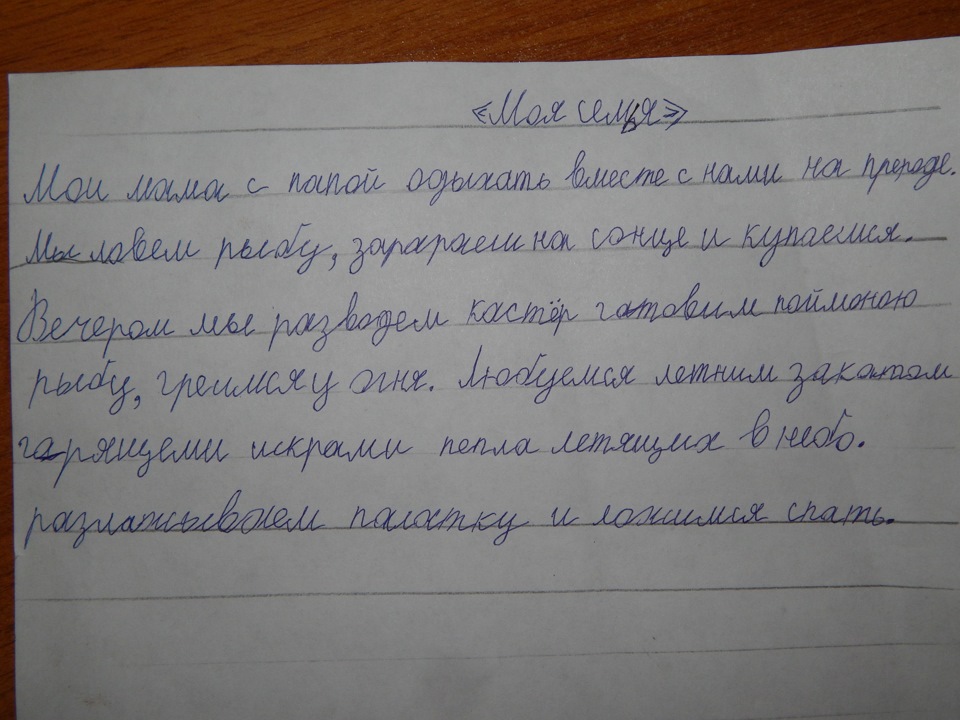 «Моя семья»
Мои мама с папой одыхать вместе с нами на прероде.
Мы ловем рыбу, зарараем на сонце и купаемся.
Вечером мы разводем кастёр гатовим пойманою
рыбу, греимся у огня. Любуемся летним закатом
гарящеми искрами пепла летящих в небо.
разлажываем палатку и ложимся спать.